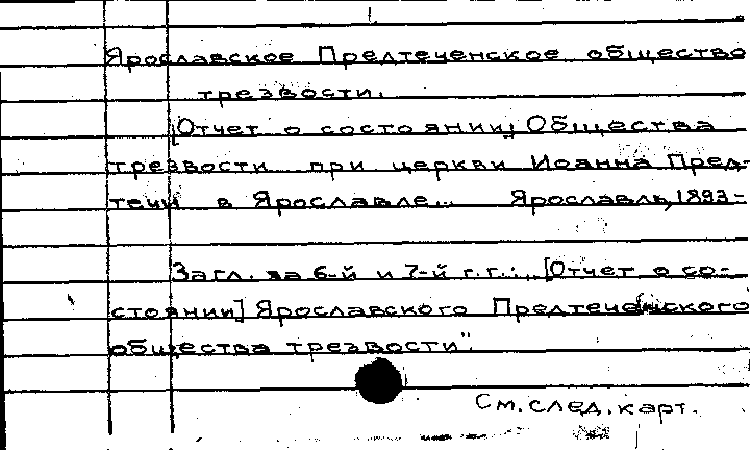 Ярославское Предтеченское общество
трезвости.
[Отчет о состоянии] Общества
трезвости при церкви Иоанна Пред-
течи в Ярославле... Ярославль, 1893-
Загл. за 6-й и 7-й г.г.: „[Отчет о со-
стоянии] Ярославского Предтеченского
общества трезвости".
См. след. карт.